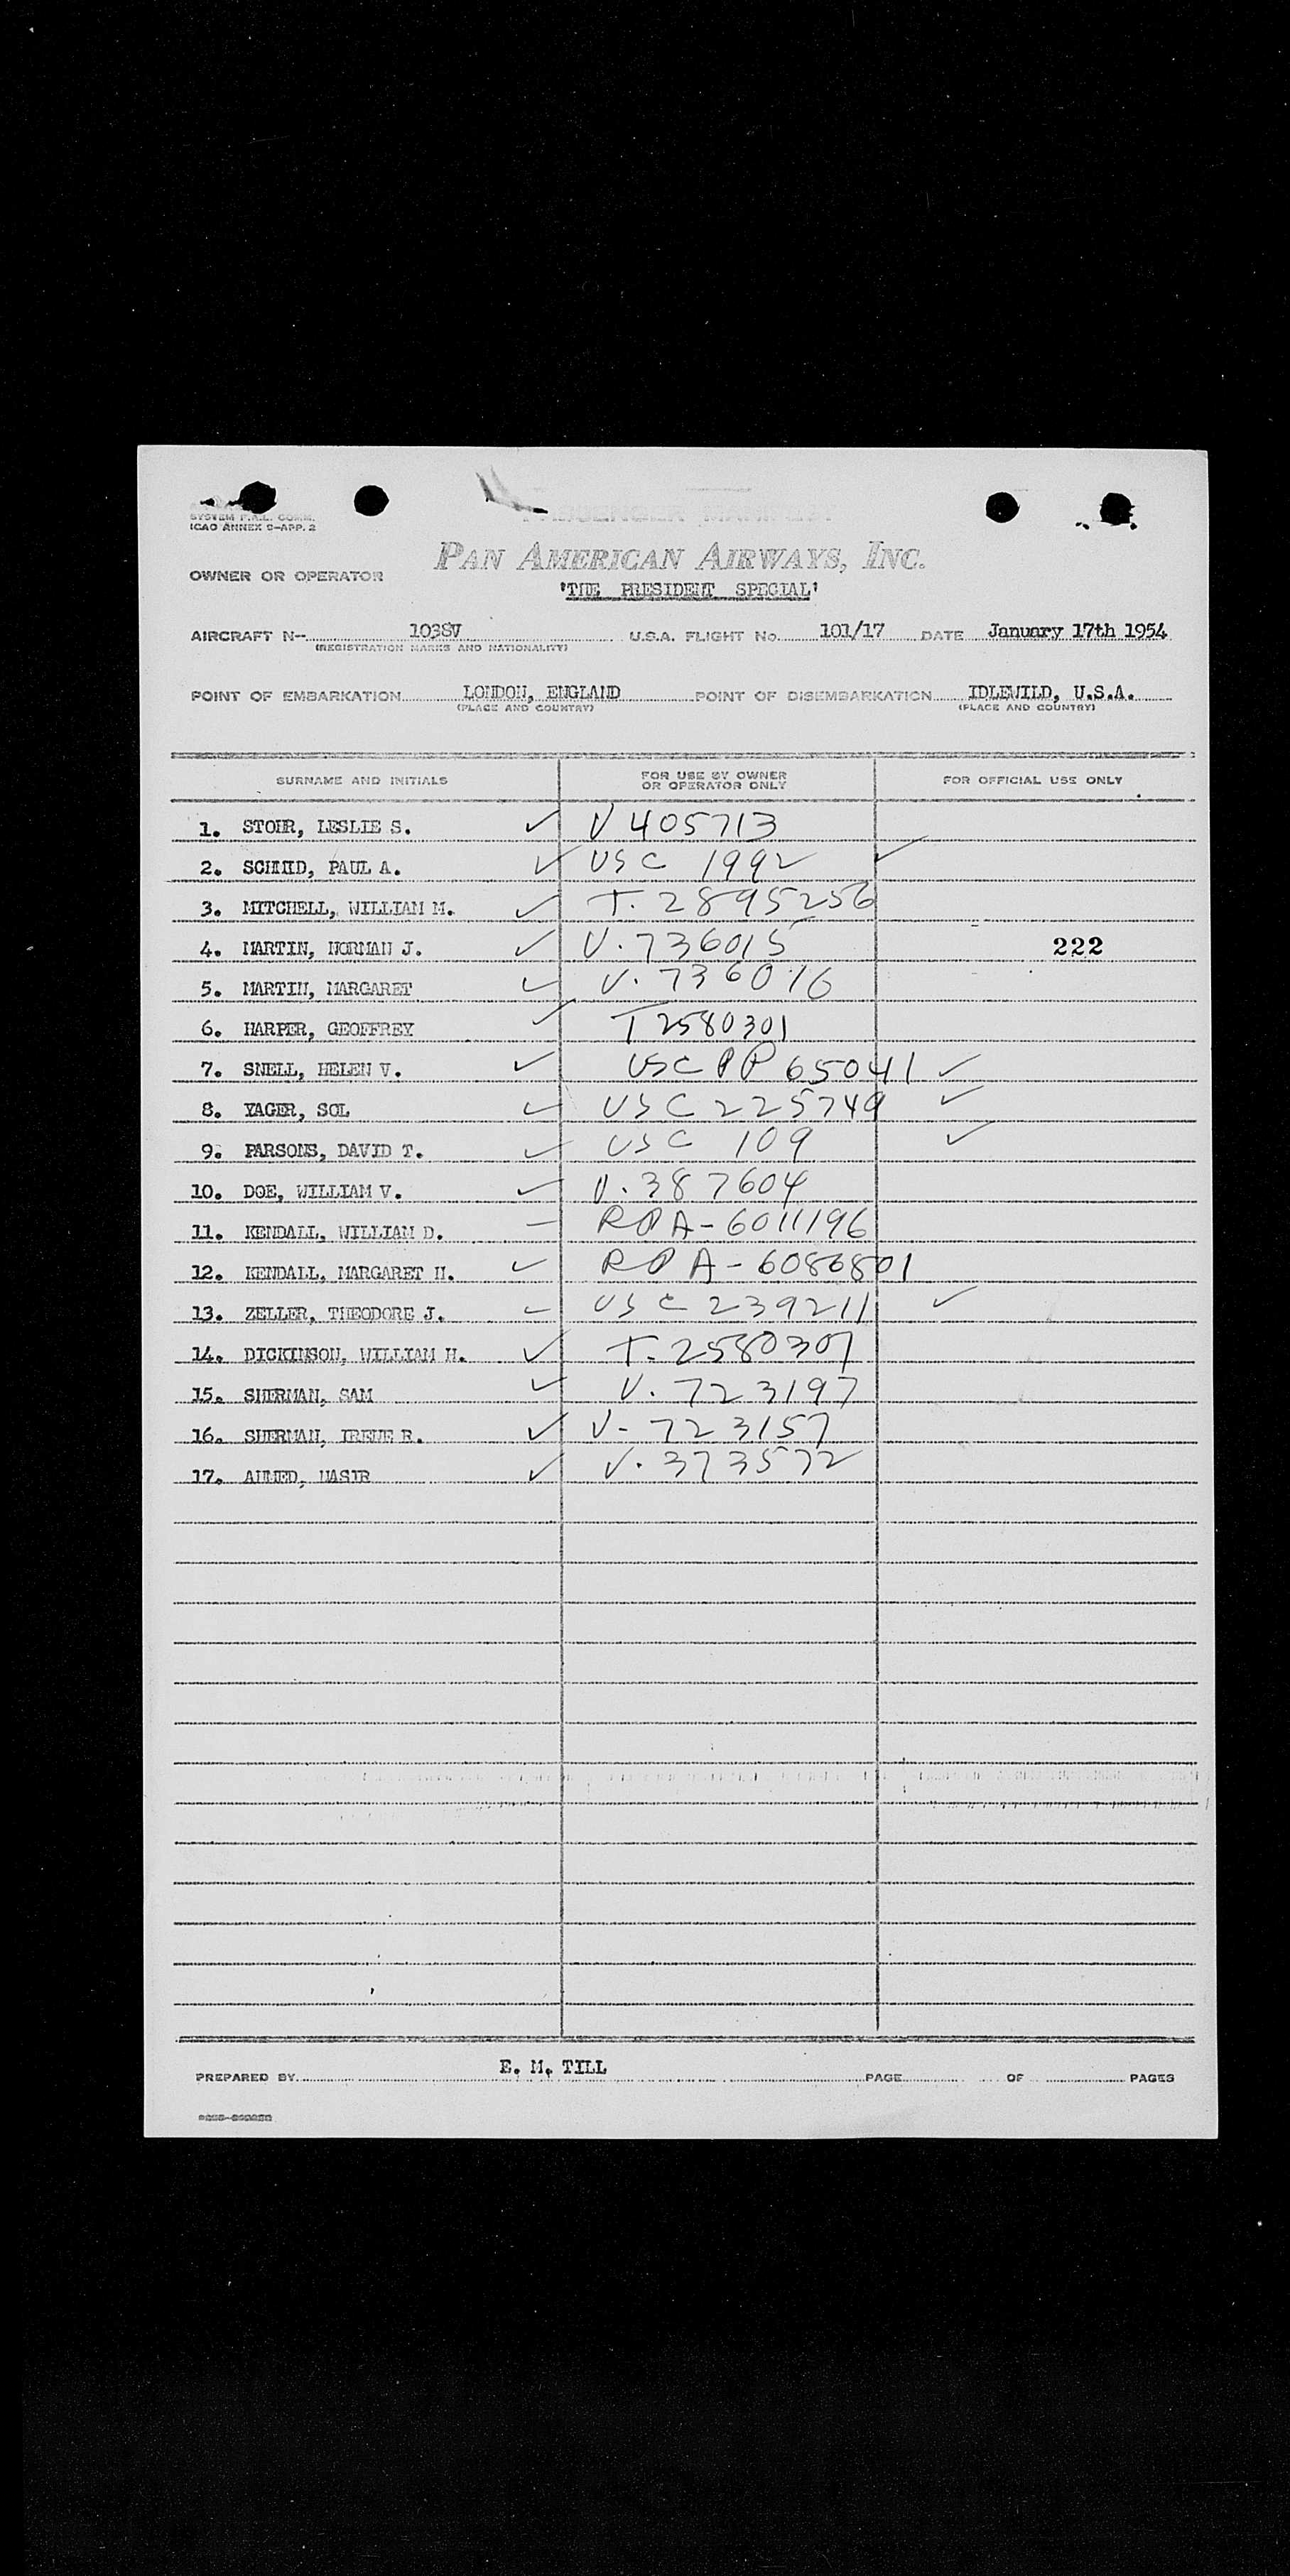 SYSTEM P.A.L. COMM.
ICAO ANNEX 9-APP. 2
PASSENGER MANIFEST
OWNER OR OPERATOR PAN AMERICAN AIRWAYS, INC.
'THE PRESIDENT SPECIAL'
AIRCRAFT N-- 1038V U.S.A. FLIGHT No. 101/17 DATE January 17th 1954
(REGISTRATION MARKS AND NATIONALITY)
POINT OF EMBARKATION LONDON, ENGLAND POINT OF DISEMBARKATION IDLEWILD, U.S.A.
(PLACE AND COUNTRY) (PLACE AND COUNTRY)
SURNAME AND INITIALS FOR USE BY OWNER OR OPERATOR ONLY FOR OFFICIAL USE ONLY
1. STOHR, LESLIE S. ✓ V 405713
2. SCHMID, PAUL A. ✓ USC 1992 ✓
3. MITCHELL, WILLIAM M. ✓ T. 2895256
4. MARTIN, NORMAN J. ✓ V. 736015 222
5. MARTIN, MARGARET ✓ V. 736016
6. HARPER, GEOFFREY ✓ T 2580301
7. SNELL, HELEN V. ✓ USC PP 65041 ✓
8. YAGER, SOL ✓ USC 225749 ✓
9. PARSONS, DAVID T. ✓ USC 109 ✓
10. DOE, WILLIAM V. ✓ V. 387604
11. KENDALL, WILLIAM D. – RPA-6011196
12. KENDALL, MARGARET H. ✓ RPA-6086801
13. ZELLER, THEODORE J. ✓ USC 239211 ✓
14. DICKINSON, WILLIAM H. ✓ T. 2580307
15. SHERMAN, SAM ✓ V. 723197
16. SHERMAN, IRENE R. ✓ V- 723157
17. AHMED, NASIR ✓ V. 373572
PREPARED BY E. M. TILL PAGE OF PAGES